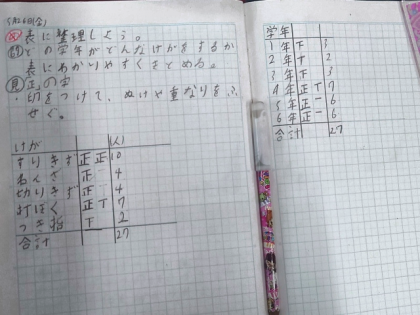 5月26日(金)
め 表に整理しよう。
問 どの学年がどんなけがをするか
表にわかりやすくまとめる。
見 正の字
・印をつけて、ぬけや重なりをふ
せぐ。
けが (人)
すりきず 正正 10
ねんざ 正 4
切りきず 正 4
打ぼく 正T 7
つき指 T 2
合計 27
学年
1年 下 3
2年 T 2
3年 下 3
4年 正T 7
5年 正一 6
6年 正一 6
合計 27